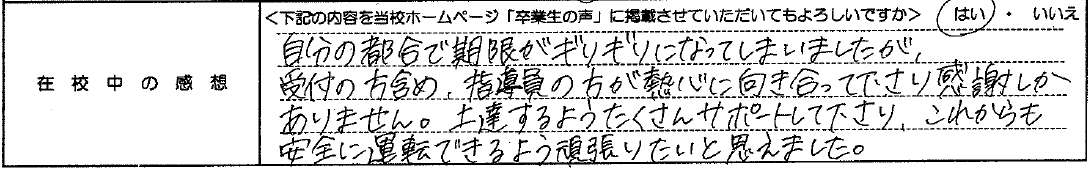 <下記の内容を当校ホームページ「卒業生の声」に掲載させていただいてもよろしいですか> はい ・ いいえ
在 校 中 の 感 想
自分の都合で期限がギリギリになってしまいましたが、
受付の方含め、指導員の方が熱心に向き合って下さり感謝しか
ありません。上達するようたくさんサポートして下さり、これからも
安全に運転できるよう頑張りたいと思えました。